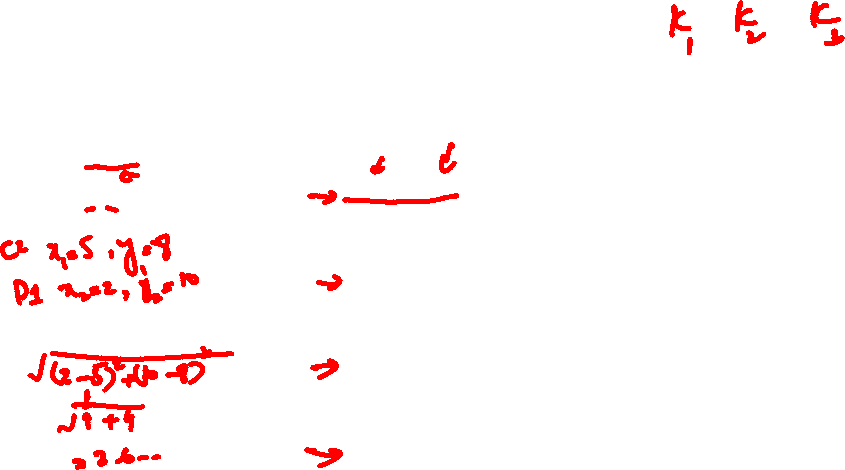 K₁ K₂ K₃
C2 x₁=5, y₁=8
P1 x₂=2, y₂=10
√(2-5)²+(10-8)²
√9+4
=3.6...